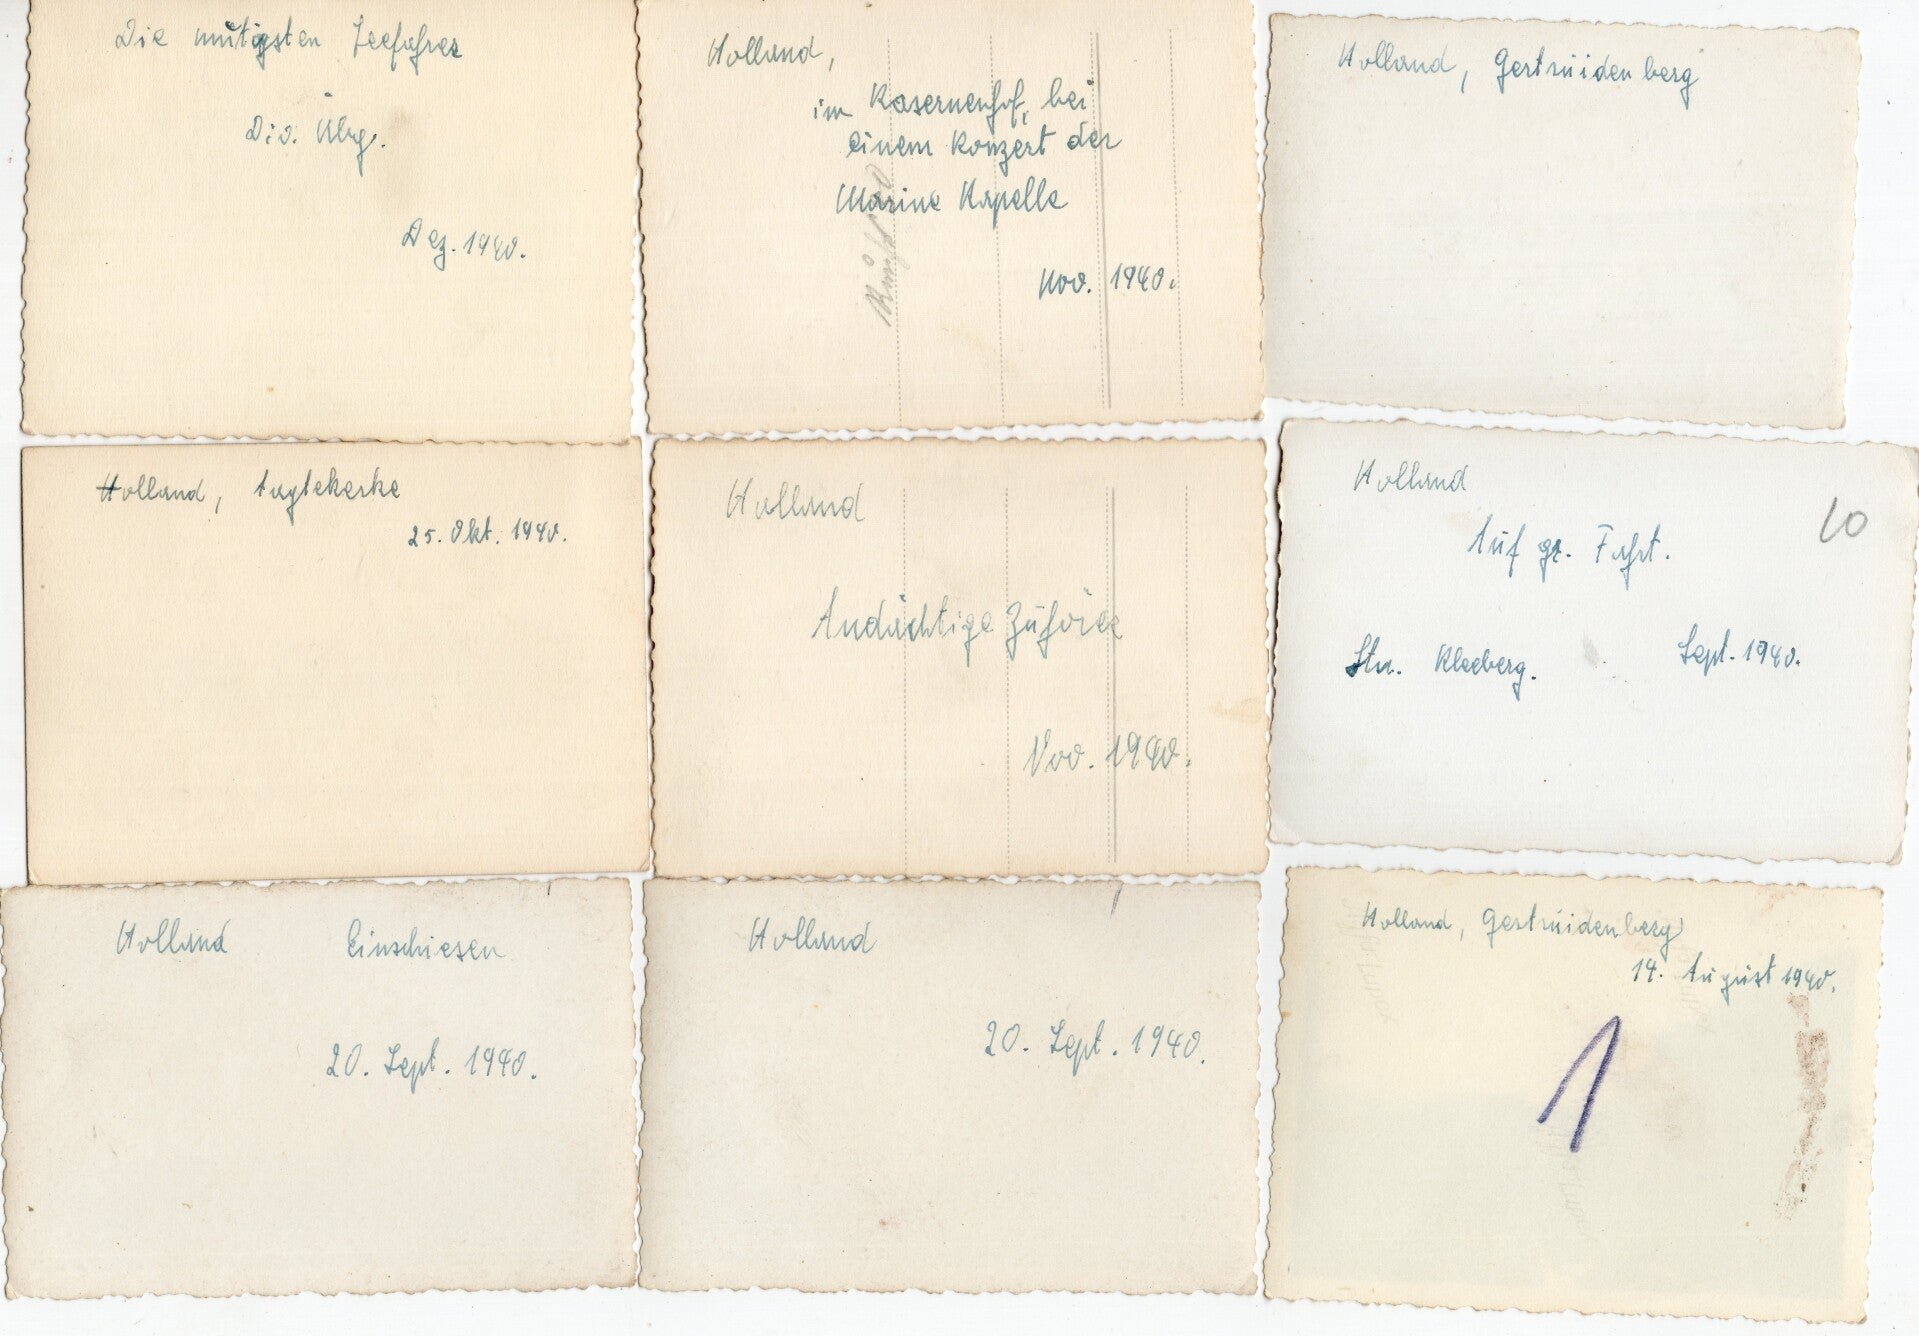 Die mutigsten Seefahrer
Div. Übg.
Dez. 1940.
Holland,
im Kasernenhof, bei
einem Konzert der
Marine Kapelle
Nov. 1940.
Holland, Gertruidenberg
Holland, Aagtekerke
25. Okt. 1940.
Holland
Andächtige Zuhörer
Nov. 1940.
Holland
Auf gr. Fahrt.
10
Stn. Kleeberg.
Sept. 1940.
Holland Einschiesen
20. Sept. 1940.
Holland
20. Sept. 1940.
Holland, Gertruidenberg
14. August 1940.
1